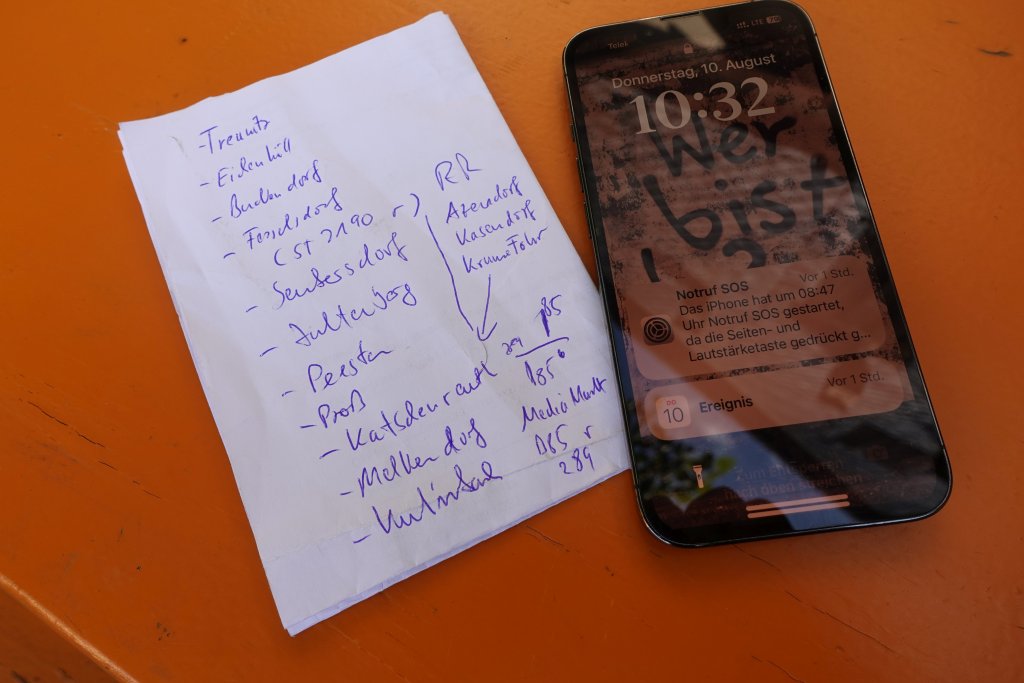 - Treunitz
- Eidenhüll
- Buckendorf
- Feselsdorf
(ST 2190 r)
- Sanbersdorf
-
- Peesten
- Proß
- Katschenrauth
- Melkendorf
-
RR
Azendorf
Kasendorf
Krume Fohr
B85
289
B85
Media Markt
B85 r
289
Telek
LTE 70
Donnerstag, 10. August
10:32
Wer
bist
Notruf SOS
Vor 1 Std.
Das iPhone hat um 08:47
Uhr Notruf SOS gestartet,
da die Seiten- und
Lautstärketaste gedrückt g...
DO
10
Ereignis
Vor 1 Std.
Zum Öffnen
nach oben streichen